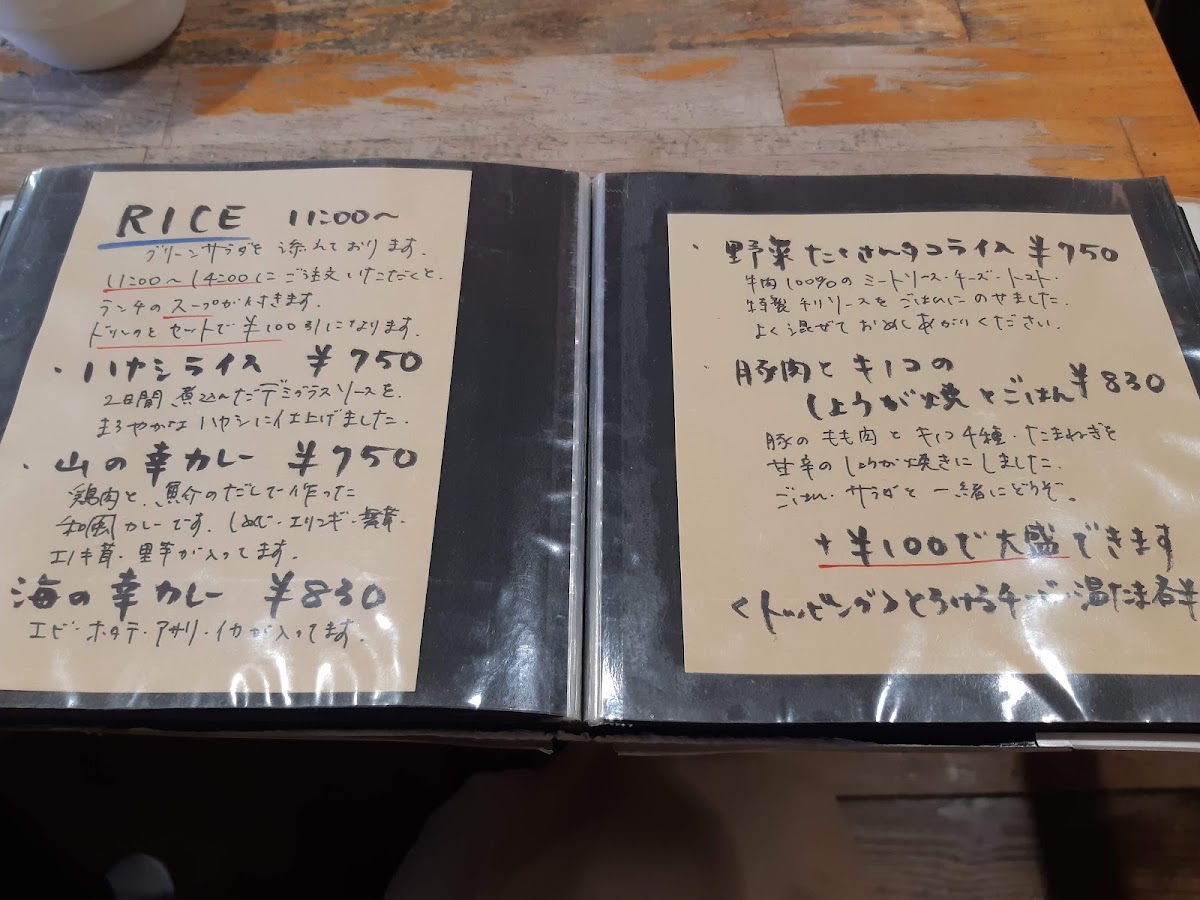 RICE 11:00〜
グリーンサラダを添えております.
11:00〜14:00にご注文いただくと、
ランチのスープが付きます.
ドリンクとセットで¥100引になります.
・ハヤシライス ¥750
2日間煮込んだデミグラスソースを、
まろやかなハヤシに仕上げました.
・山の幸カレー ¥750
鶏肉と、魚介のだしで作った
和風カレーです. しめじ・エリンギ・舞茸・
エノキ茸・里芋が入ってます.
海の幸カレー ¥830
エビ・ホタテ・アサリ・イカが入ってます.
・野菜たくさんタコライス ¥750
牛肉100%のミートソース・チーズ・トマト・
特製チリソースをごはんにのせました.
よく混ぜておめしあがりください.
・豚肉とキノコの
しょうが焼とごはん ¥830
豚のもも肉とキノコ4種・たまねぎを
甘辛のしょうが焼きにしました.
ごはん・サラダと一緒にどうぞ。
+¥100で大盛できます
<トッピング>とろけるチーズ・温たま各¥